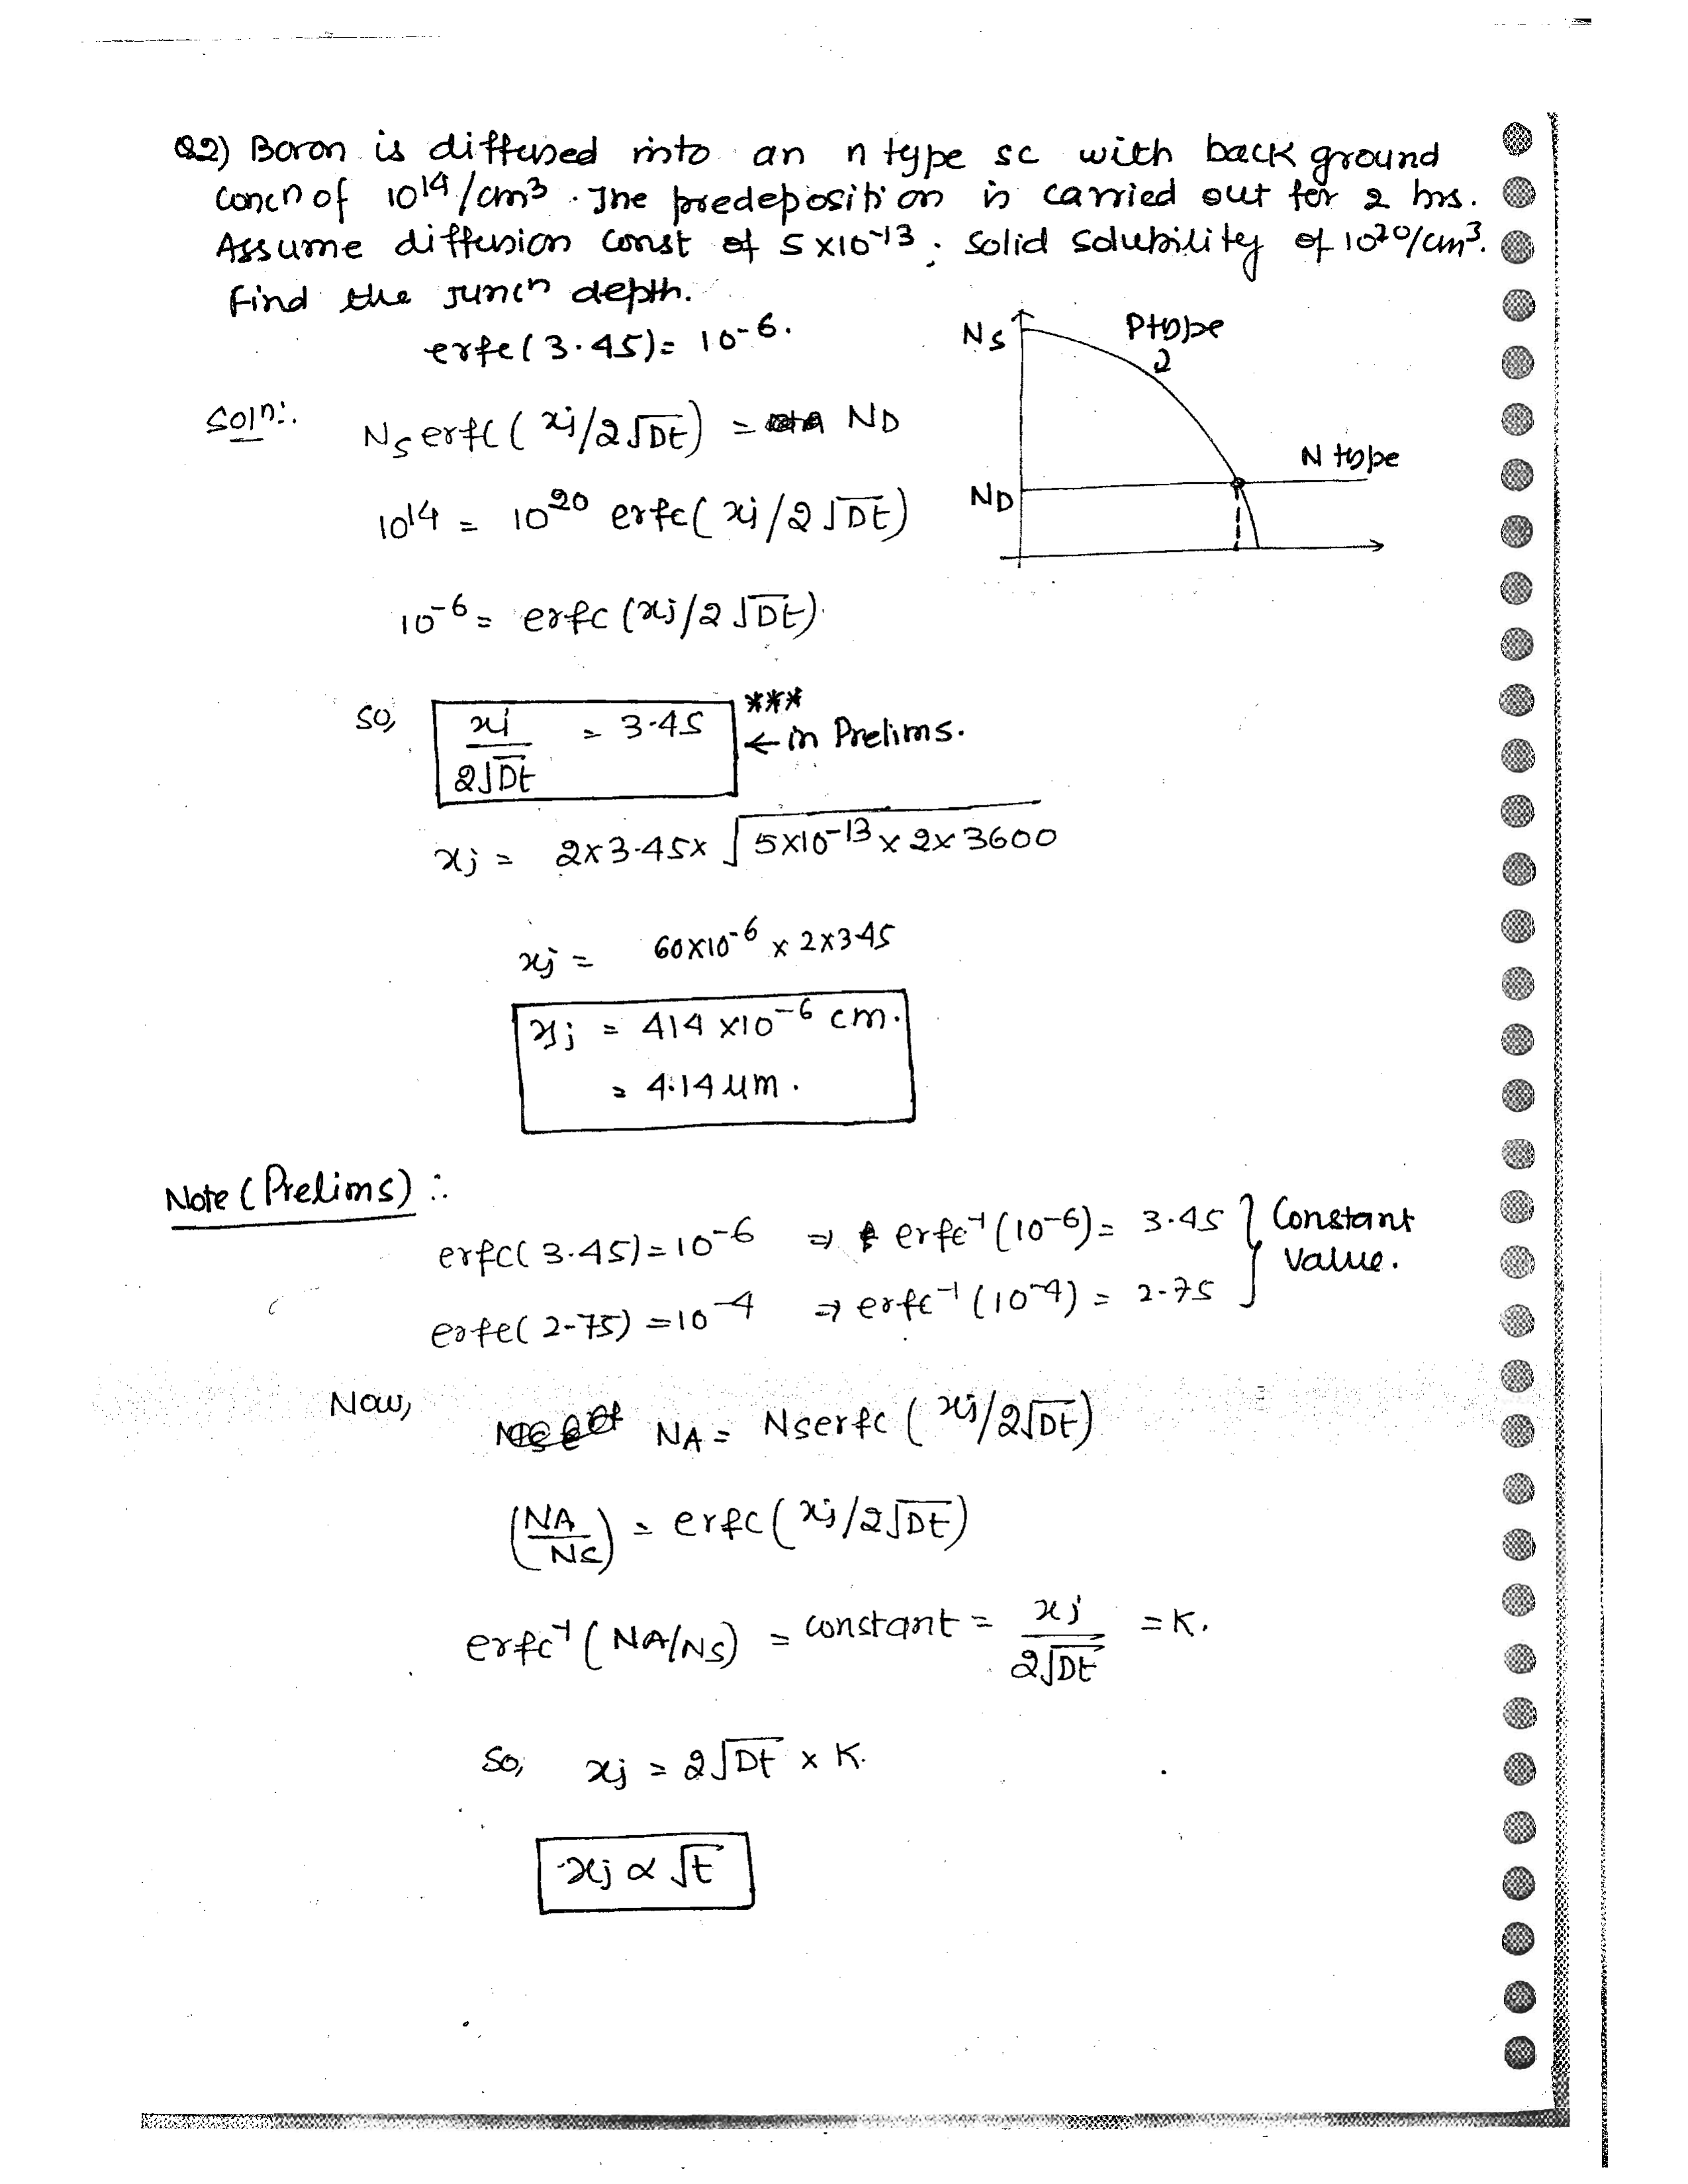 Q2) Boron is diffused into an n type sc with back ground
concn of 10^14/cm^3. The predeposition is carried out for 2 hrs.
Assume diffusion const of 5x10^-13. Solid solubility of 10^20/cm^3.
Find the juncn depth.
erfc(3.45)= 10^-6.
Ns
Ptype
Soln:.
Ns erfc(xj/2√Dt) = ND
N type
ND
10^14 = 10^20 erfc(xj/2√Dt)
10^-6 = erfc(xj/2√Dt).
so, xj/2√Dt = 3.45
***
← in Prelims.
xj = 2x3.45x √5x10^-13 x 2x3600
xj = 60x10^-6 x 2x3.45
xj = 414 x10^-6 cm.
= 4.14 um.
Note (Prelims) :.
erfc(3.45)=10^-6 ⇒ erfc^-1(10^-6)= 3.45
erfc(2.75)=10^-4 ⇒ erfc^-1(10^-4)= 2.75
} Constant
Value.
Now,
NA= Nserfc(xj/2√Dt)
(NA/NS) = erfc(xj/2√Dt)
erfc^-1(NA/NS) = constant = xj/2√Dt = K.
So, xj = 2√Dt x K.
xj ∝ √t